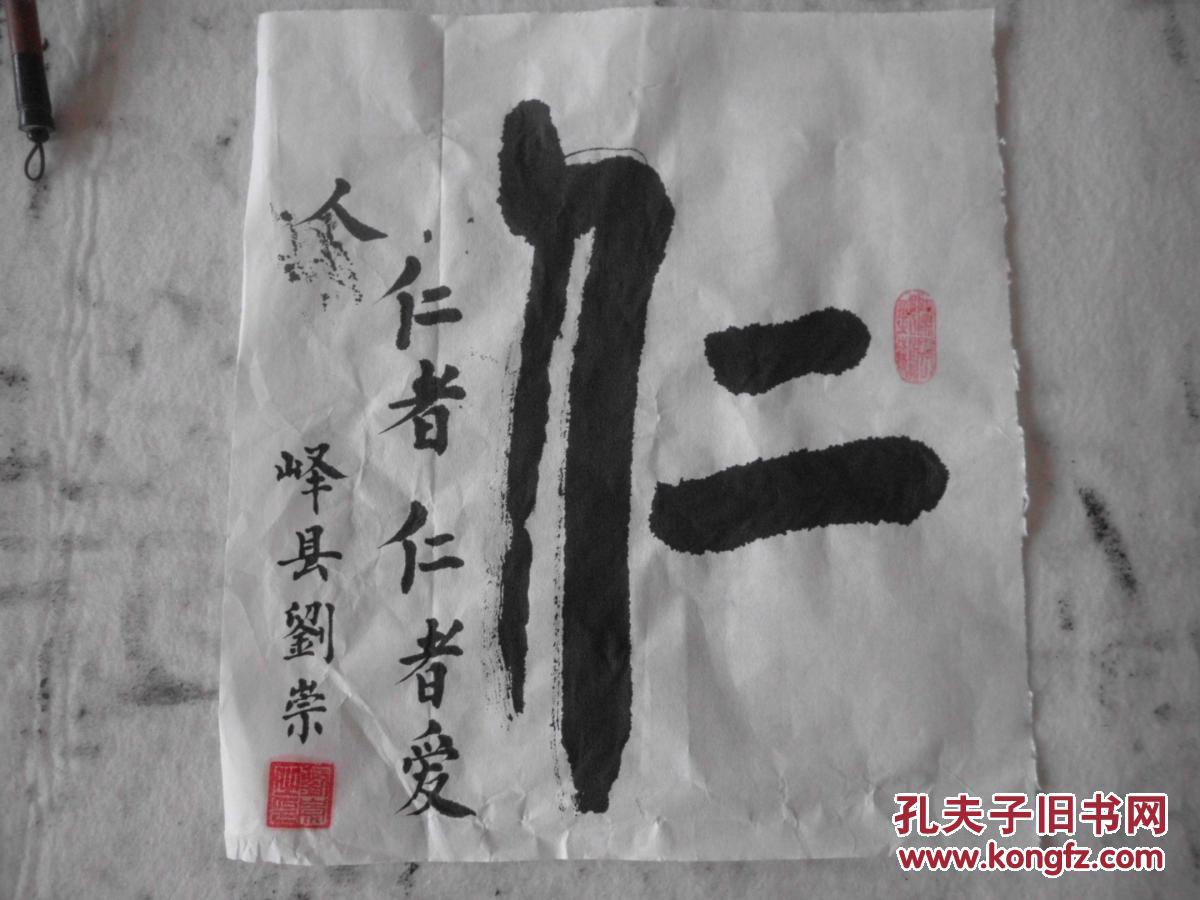 仁
仁者仁者爱
人
峄县劉崇
孔夫子旧书网
www.kongfz.com